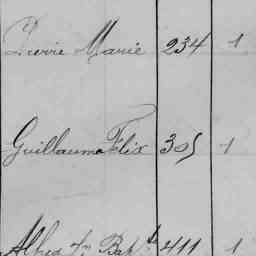 Pierre Marie 234 1
Guillaume Félix 305 1
Alfred Jn Bapte 411 1